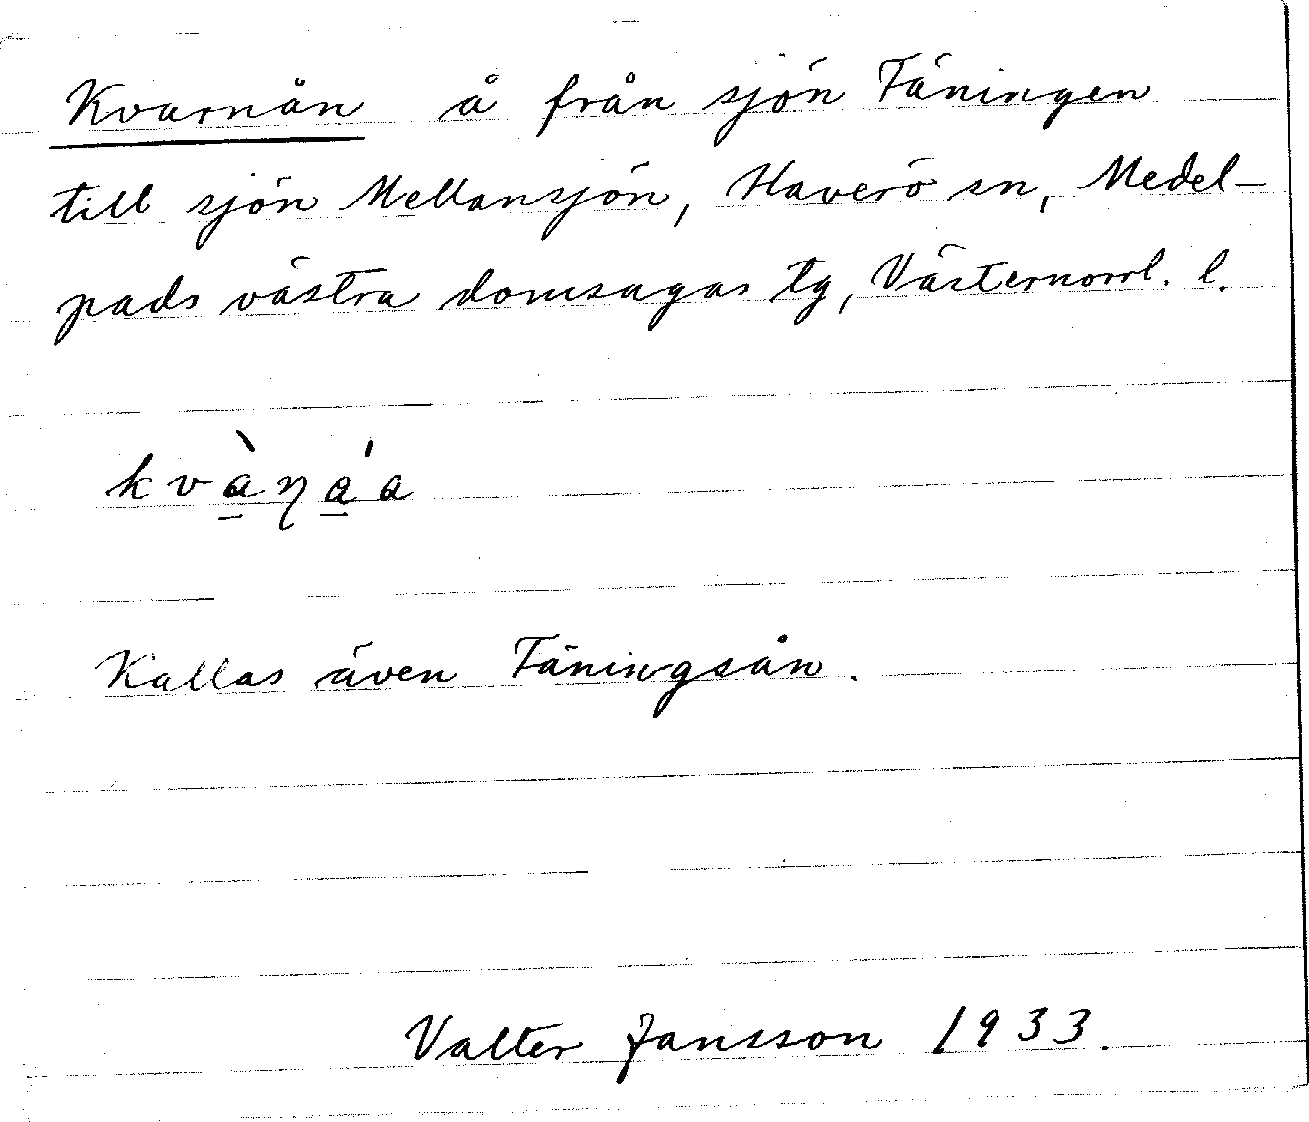 Kvarnån å från sjön Täningen
till sjön Mellansjön, Haverö sn, Medel-
pads västra domsagas tg, Västernorrl. l.
kvàṇáa
Kallas även Täningsån.
Valter Jansson 1933.